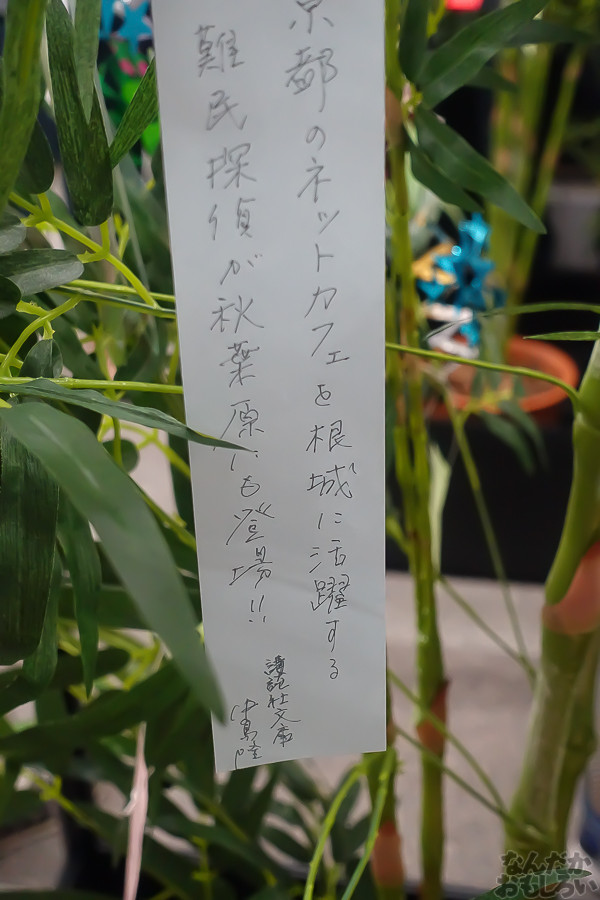 京都のネットカフェを根城に活躍する
難民探偵が秋葉原にも登場!!
講談社文庫
なんだか
おもしろい